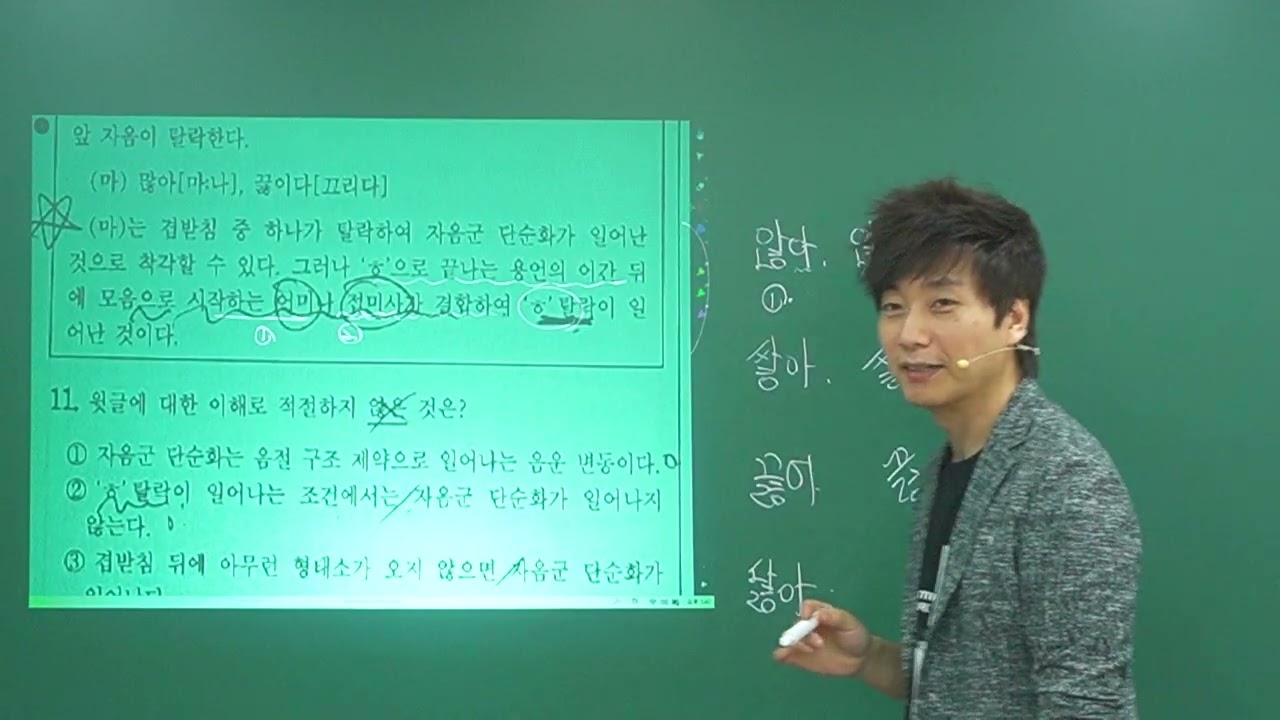 앞 자음이 탈락한다.
(마) 많아[마:나], 끓이다[끄리다]
(마)는 겹받침 중 하나가 탈락하여 자음군 단순화가 일어난
것으로 착각할 수 있다. 그러나 ‘ㅎ’으로 끝나는 용언의 어간 뒤
에 모음으로 시작하는 어미나 접미사가 결합하여 ‘ㅎ’ 탈락이 일
어난 것이다.
① ②
11. 윗글에 대한 이해로 적절하지 않은 것은?
① 자음군 단순화는 음절 구조 제약으로 일어나는 음운 변동이다.
② ‘ㅎ’ 탈락이 일어나는 조건에서는 자음군 단순화가 일어나지
않는다.
③ 겹받침 뒤에 아무런 형태소가 오지 않으면 자음군 단순화가
일어난다.
①
끓어